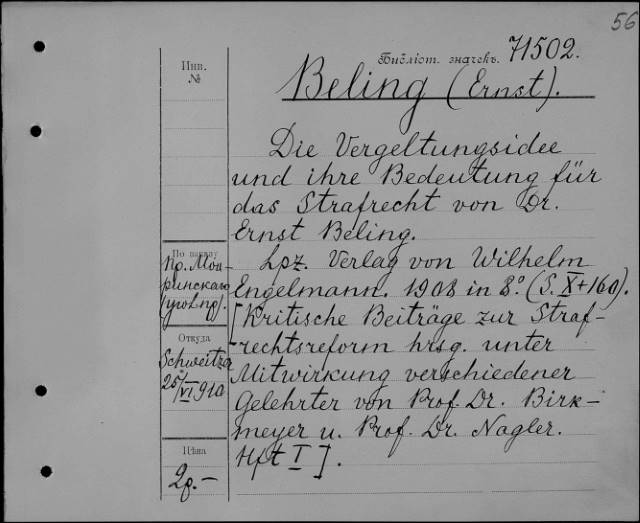 56
Библіот. значекъ. 71502.
Инв.
№
Beling (Ernst).
Die Vergeltungsidee
und ihre Bedeutung für
das Strafrecht von Dr.
Ernst Beling.
По заказу
Пр. Мок-
ринскаго
(угол.пр).
Lpz. Verlag von Wilhelm
Engelmann. 1908 in 8.° (S. X+160).
[Kritische Beiträge zur Straf-
rechtsreform hrsg. unter
Mitwirkung verschiedener
Gelehrter von Prof. Dr. Birk-
meyer u. Prof. Dr. Nagler.
Hft I].
Откуда
Schweitzer
25/VI 910
Цѣна
2р.-